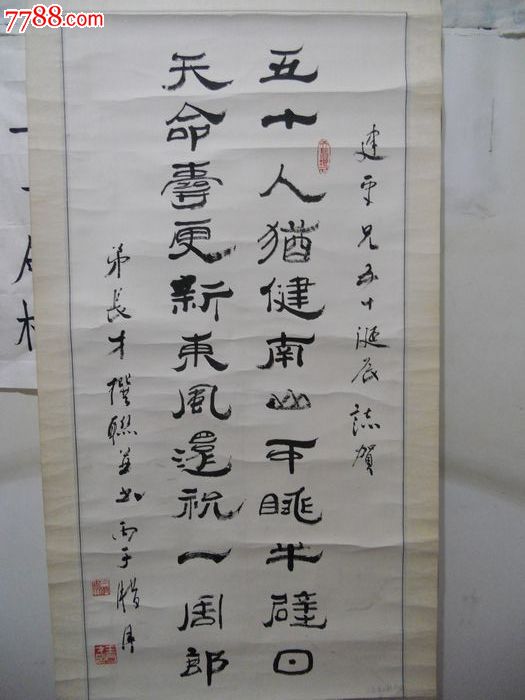 7788.com
建平兄五十誕辰誌賀
五十人猶健南山眺半壁日
天命壽更新東風還祝一周郎
弟長才撰聯并书丙子腊月